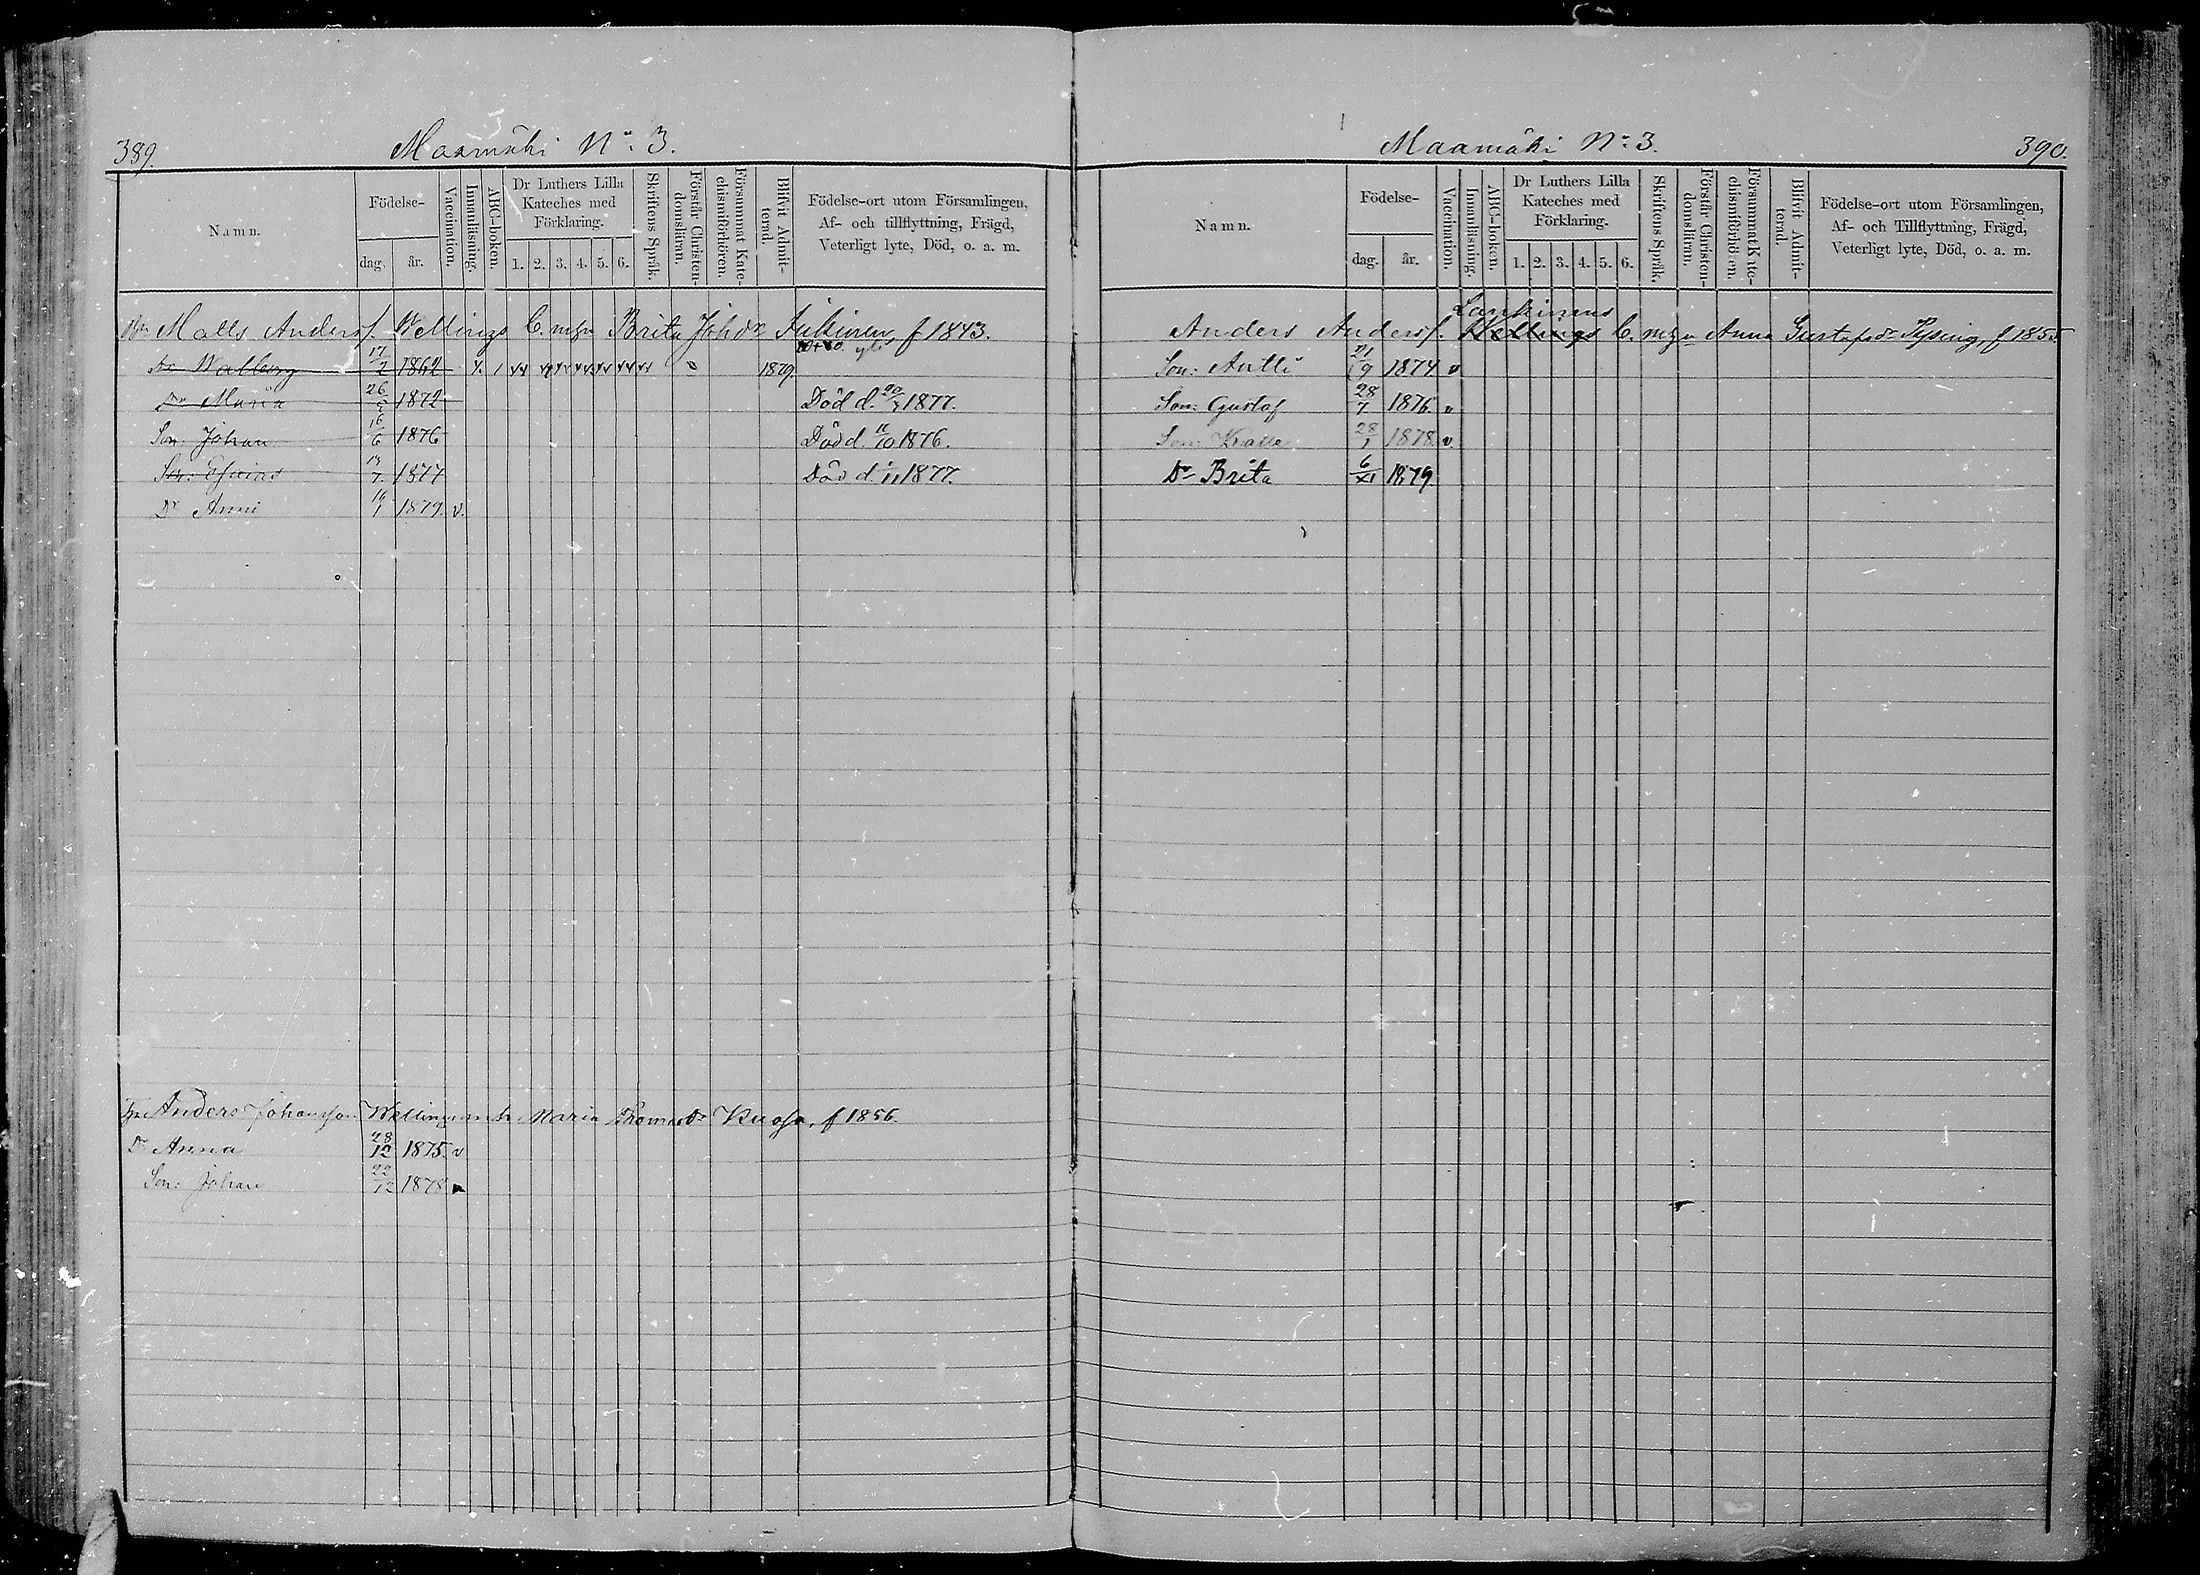 389.
Maamäki No: 3.
Namn.
Födelse-
dag.
år.
Vaccination.
Innanläsning.
ABC-boken.
Dr Luthers Lilla Kateches med Förklaring.
1. 2. 3. 4. 5. 6.
Skriftens Språk.
Förstår Christendomsläran.
Försummat Katechismiförhören.
Blifvit Admitterad.
Födelse-ort utom Församlingen,
Af- och tillflyttning, Frägd,
Veterligt lyte, Död, o. a. m.
Matts Anderss. Wellings C. mgn Brita Johdr f 1843.
Dr Walborg 17/2 1862 1879.
Dr Maria 26/5 1872 Död d. 1877.
Son: Johan 16/6 1876 Död d. 11/10 1876.
Son: 1877 Död d. 1877.
Dr Anni 1879. v.
Anders Johansson Welling Maria Thomasdr Kuosa, f 1856.
Dr Anna 28/12 1875. v
Son: Johan 22/12 1878
Maamäki No: 3.
390.
Namn.
Födelse-
dag.
år.
Vaccination.
Innanläsning.
ABC-boken.
Dr Luthers Lilla Kateches med Förklaring.
1. 2. 3. 4. 5. 6.
Skriftens Språk.
Förstår Christendomsläran.
Försummat Katechismiförhören.
Blifvit Admitterad.
Födelse-ort utom Församlingen,
Af- och Tillflyttning, Frägd,
Veterligt lyte, Död, o. a. m.
Lankinens
Anders Anderss. Wellings C. mgn Anna Gustafsdr f 1855
Son: Antti 21/9 1874 v
Son: Gustaf 28/7 1876. v
Son: Kalle 28/1 1878. v
Dr Brita 6/XI 1879.